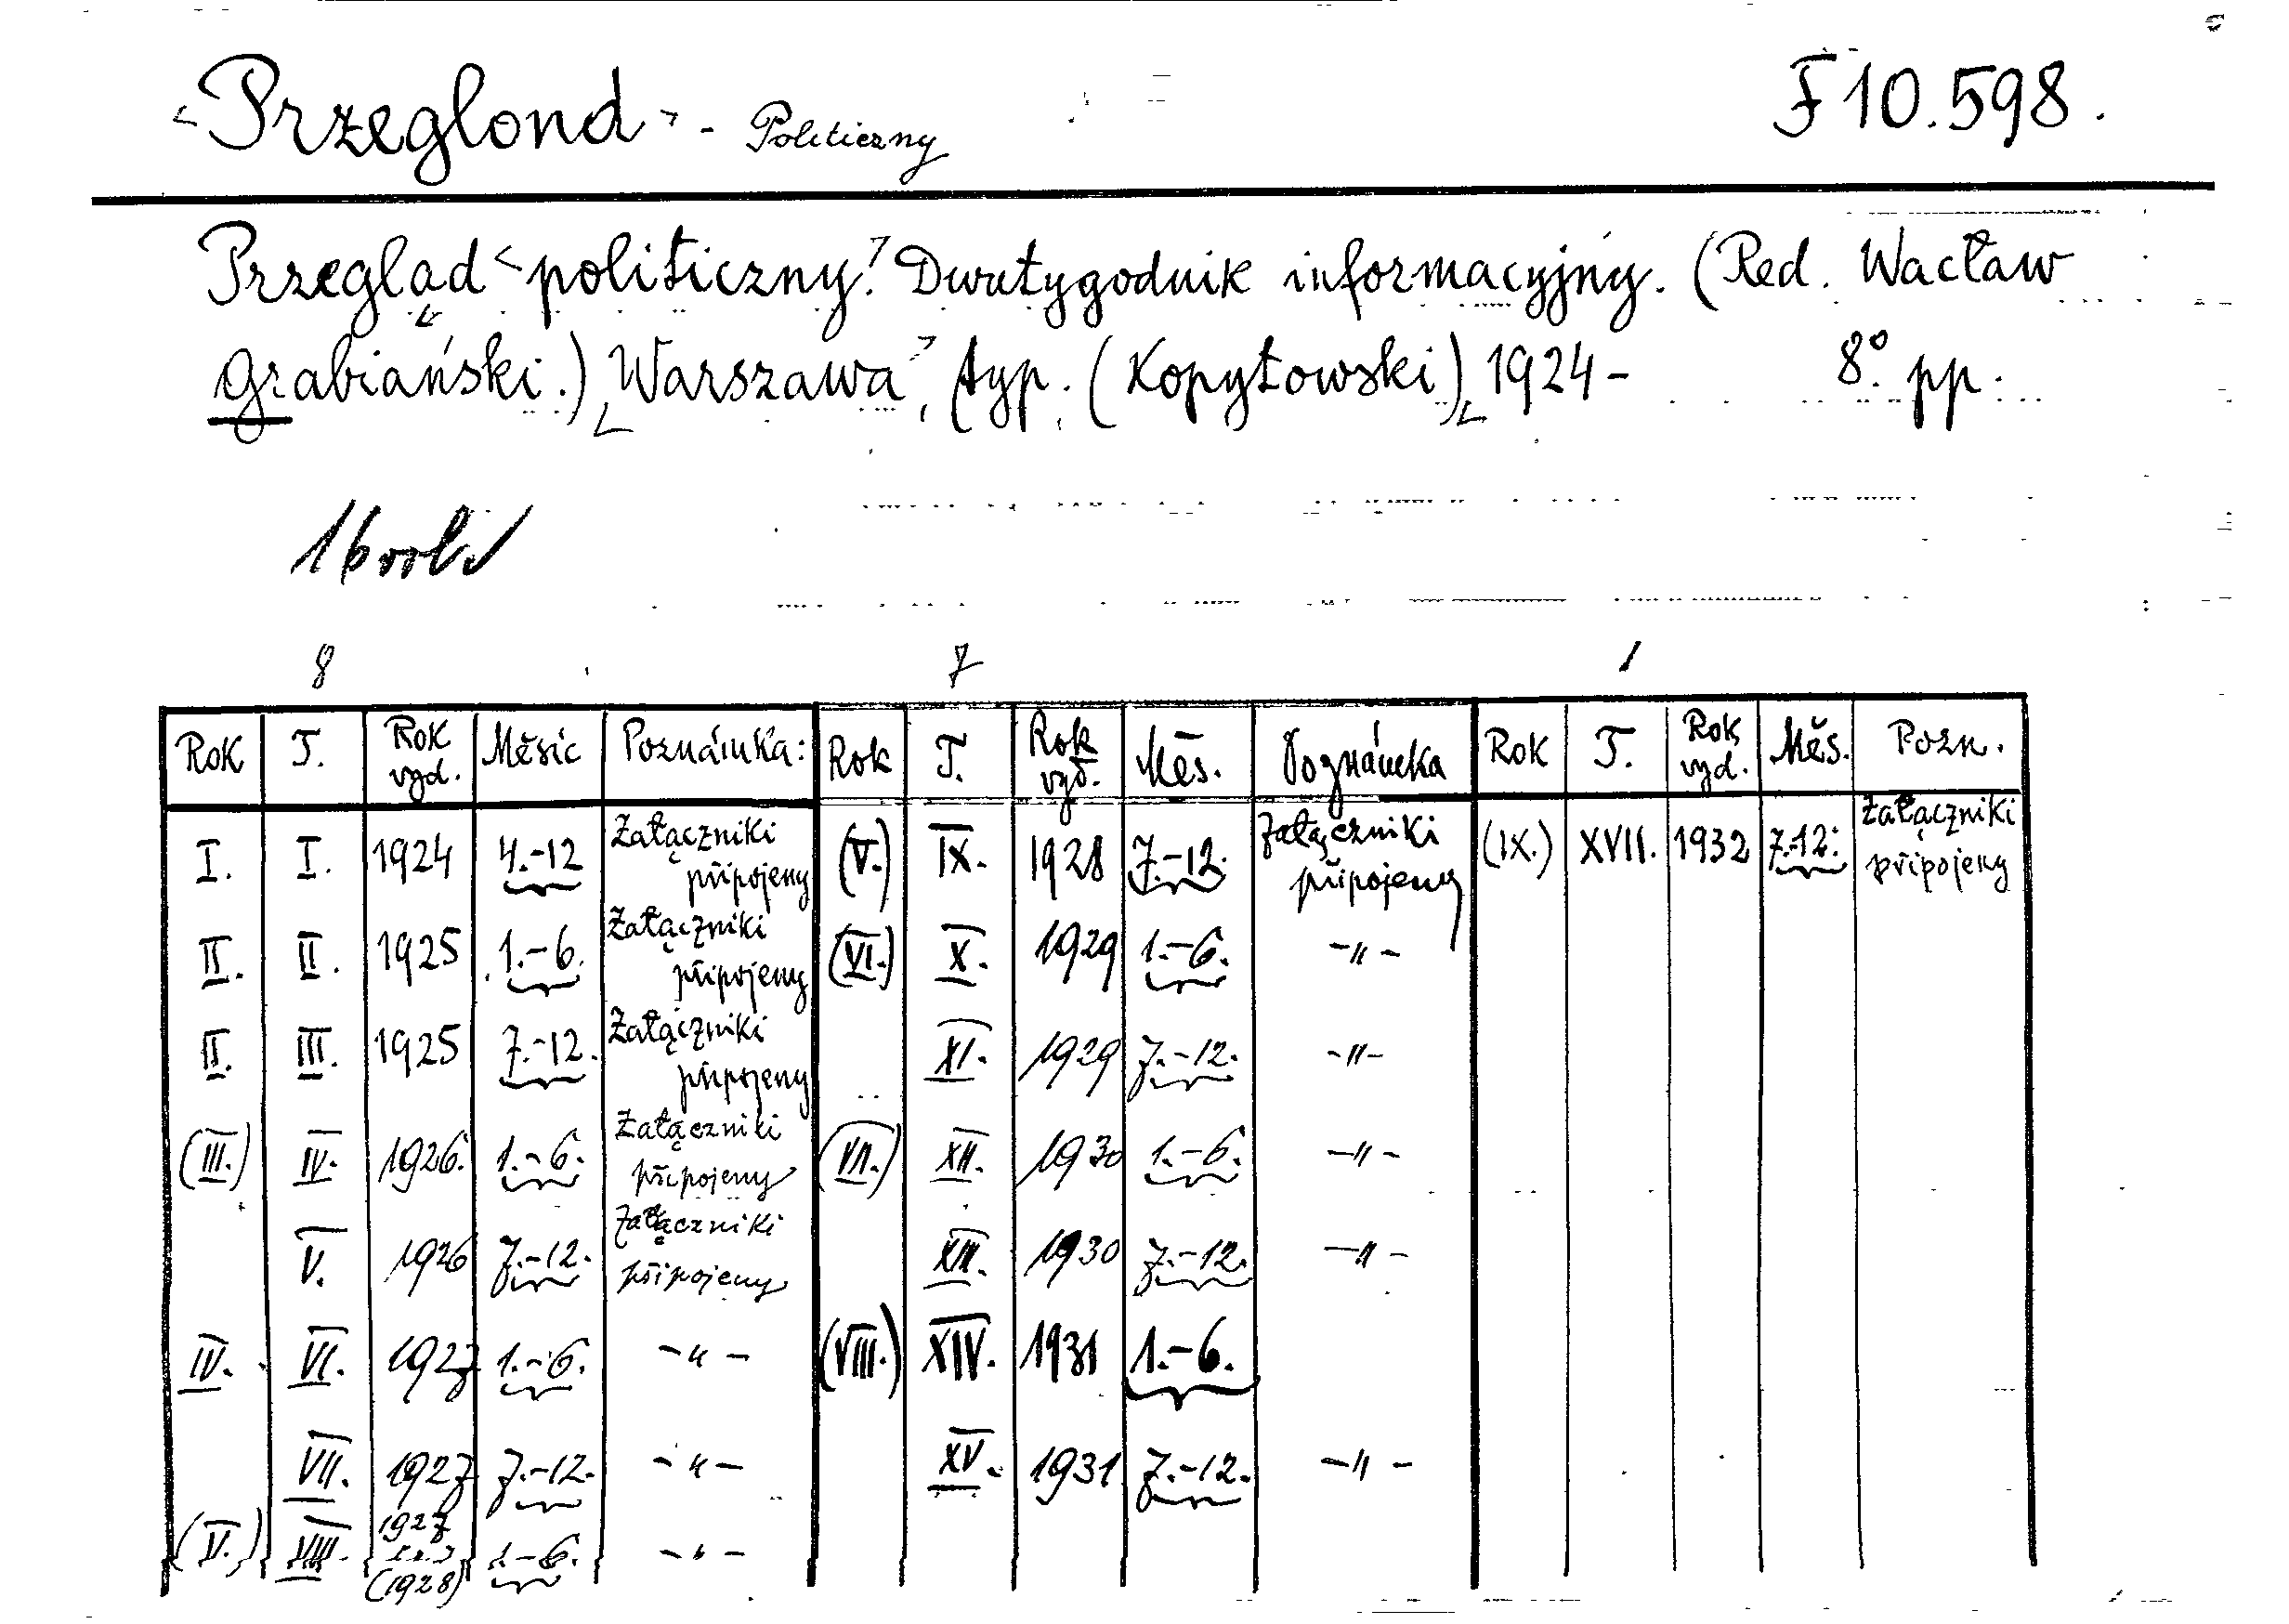 <Przeglond> - Politiczny
F 10.598.
Przegląd <politiczny.> Dwutygodnik informacyjny. (Red. Wacław
Grabiański.) <Warszawa>, (typ. (Kopytowski) < 1924 - 8° pp.
8 7 1
Rok T. Rok vyd. Měsíc Poznámka: Rok T. Rok vyd. Měs. Poznámka Rok T. Rok vyd. Měs. Pozn.
I. I. 1924 4.-12 Załączniki připojeny (V.) IX. 1928 7.-12. Załączniki připojeny (IX.) XVII. 1932 7.-12. Załączniki připojeny
II. II. 1925 1.-6. Załączniki připojeny (VI.) X. 1929 1.-6. -"-
II. III. 1925 7.-12. Załączniki připojeny XI. 1929 7.-12. -"-
(III.) IV. 1926. 1.-6. Załączniki připojeny (VII.) XII. 1930 1.-6. -"-
V. 1926 7.-12. Załączniki připojeny XIII. 1930 7.-12. -"-
IV. VI. 1927 1.-6. -"- (VIII.) XIV. 1931 1.-6.
VII. 1927 7.-12. -"- XV. 1931 7.-12. -"-
(V.) VIII. 1927 (1928) 1.-6. -"-